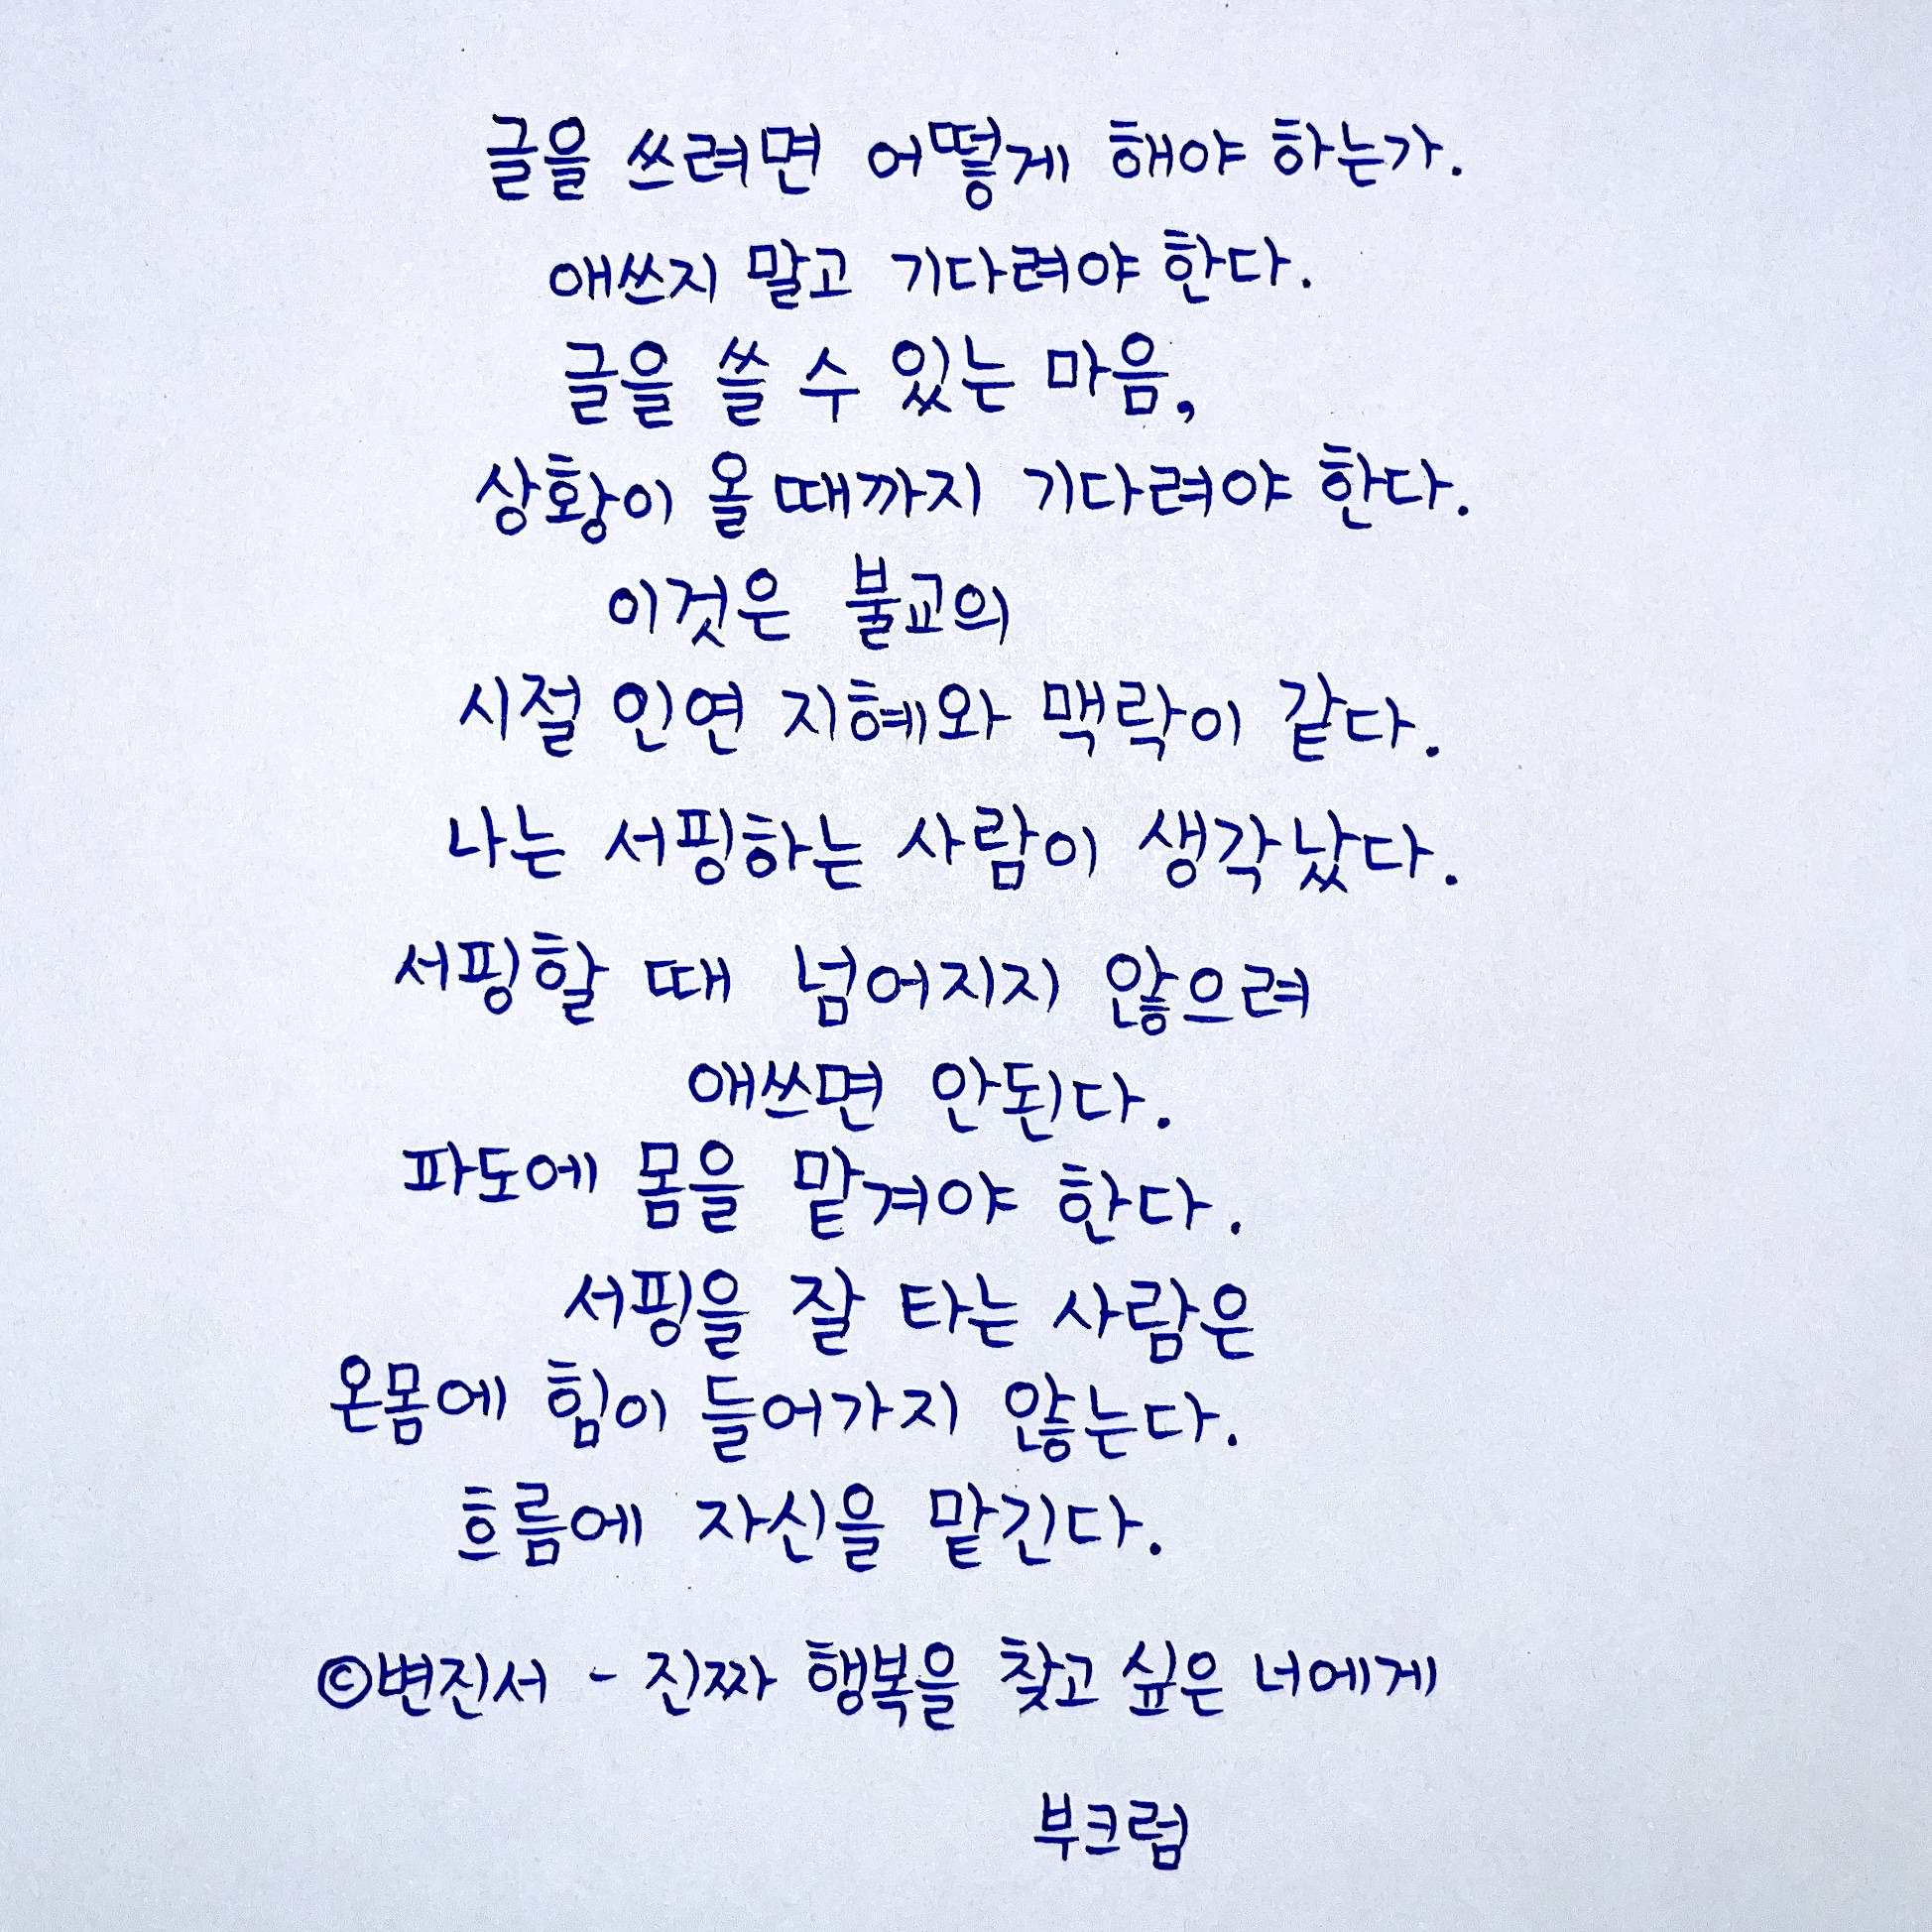 글을 쓰려면 어떻게 해야 하는가.
애쓰지 말고 기다려야 한다.
글을 쓸 수 있는 마음,
상황이 올 때까지 기다려야 한다.
이것은 불교의
시절 인연 지혜와 맥락이 같다.
나는 서핑하는 사람이 생각났다.
서핑할 때 넘어지지 않으려
애쓰면 안된다.
파도에 몸을 맡겨야 한다.
서핑을 잘 타는 사람은
온몸에 힘이 들어가지 않는다.
흐름에 자신을 맡긴다.
©변진서 - 진짜 행복을 찾고 싶은 너에게
부크럼